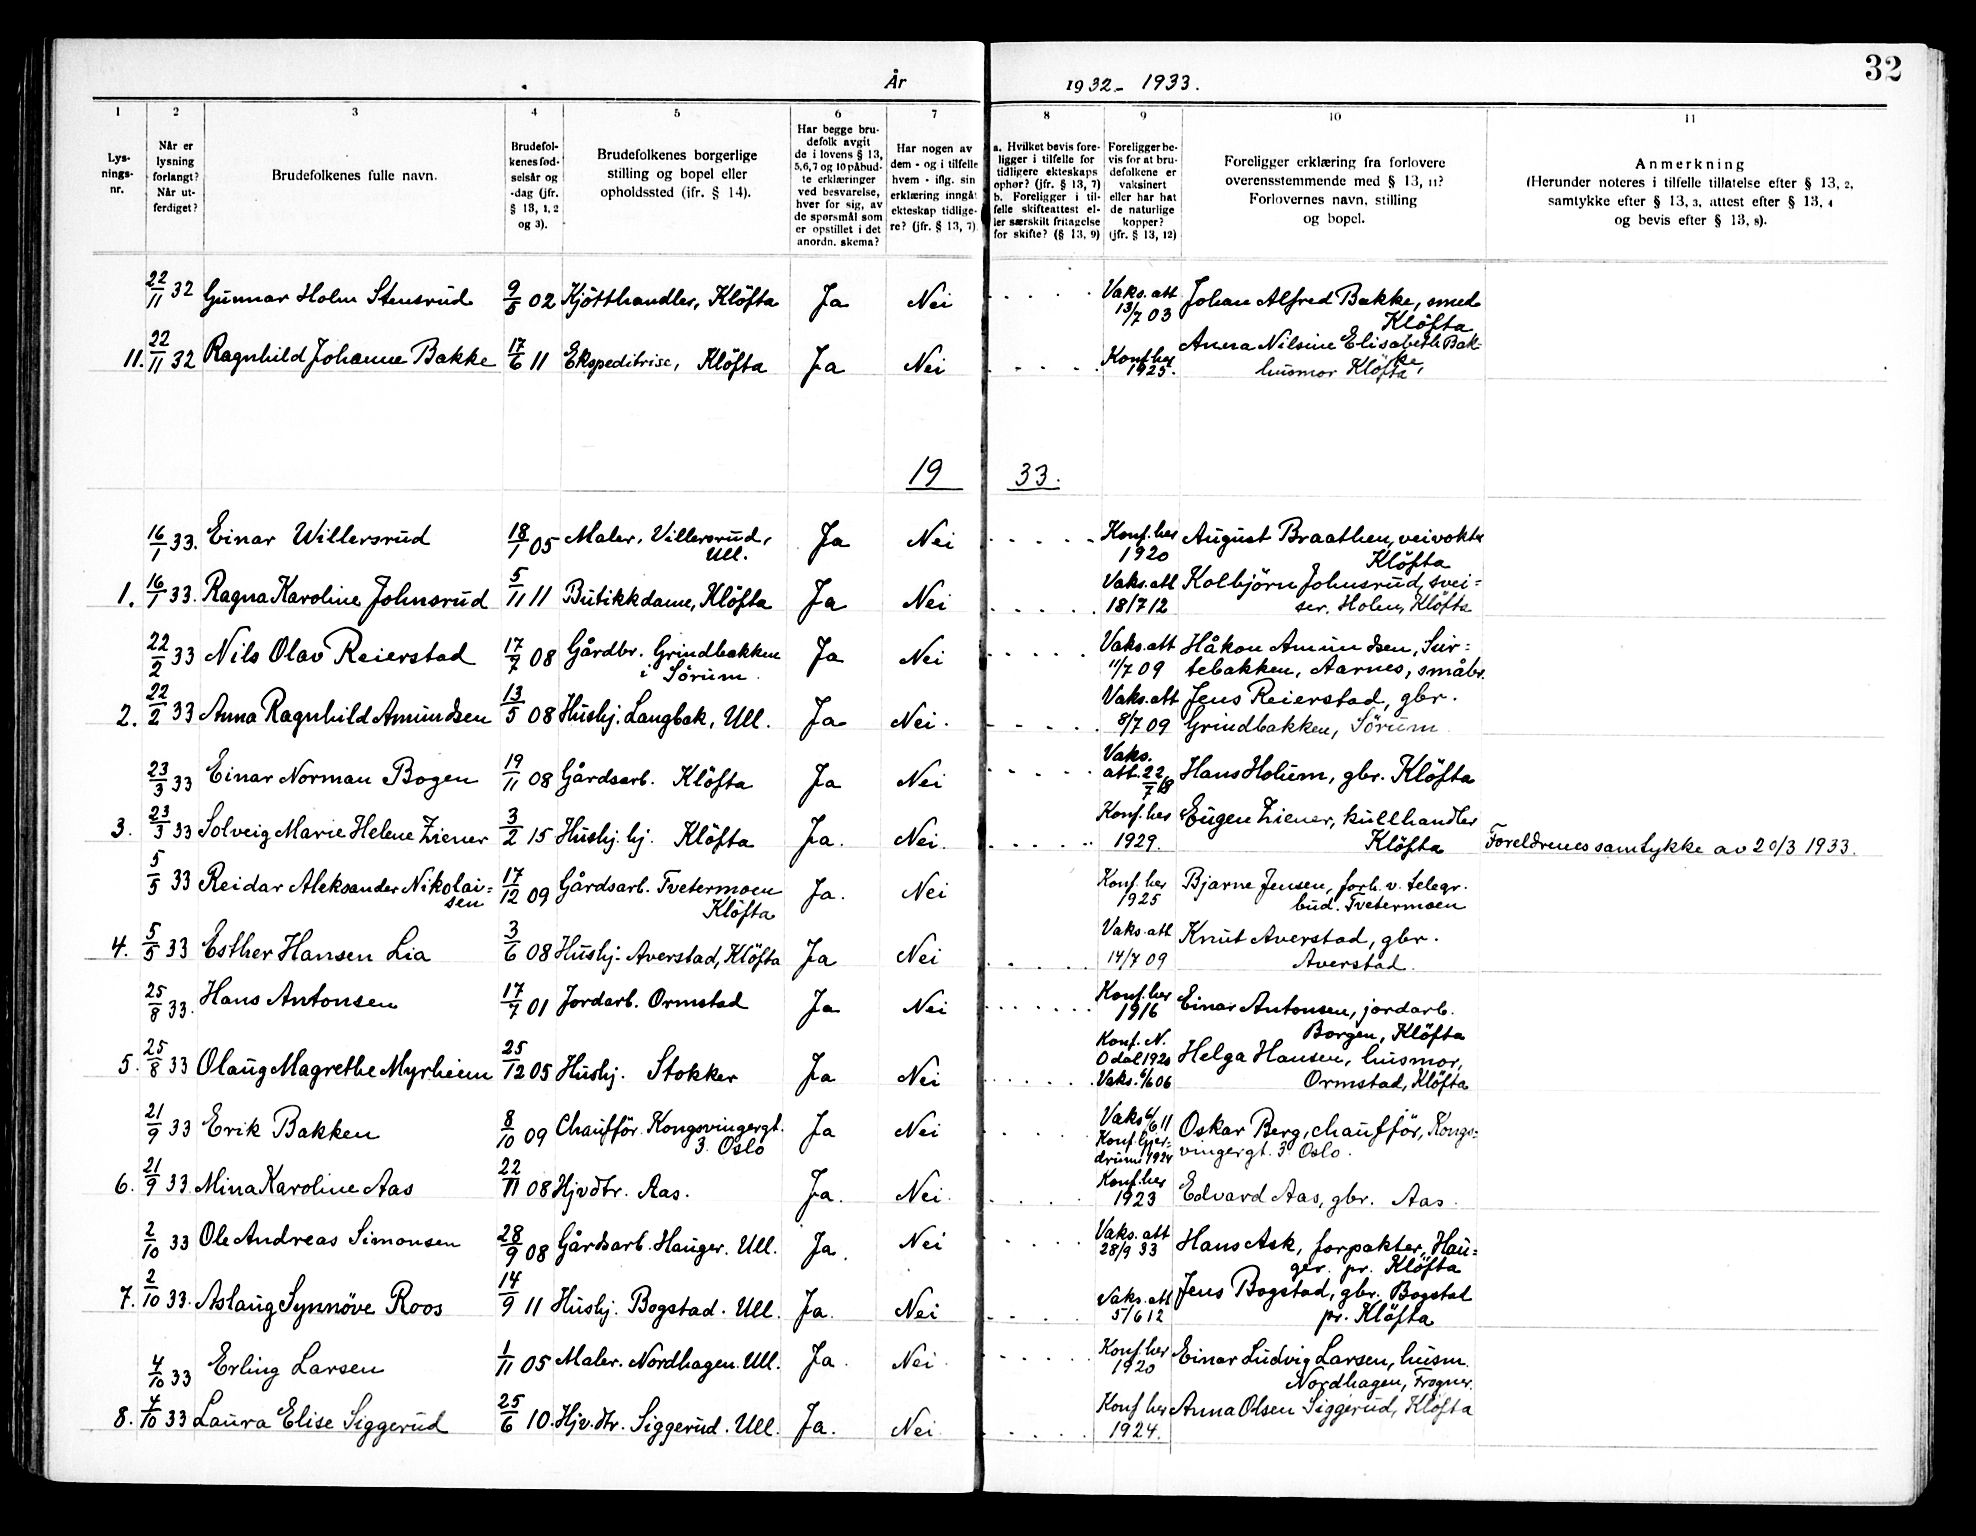 32
År 1932 - 1933.
1 2 3 4 5 6 7 8 9 10 11
Lys-
nings-
nr.
Når er
lysning
forlangt?
Når ut-
ferdiget?
Brudefolkenes fulle navn.
Brudefol-
kenes fød-
selsår og
-dag (jfr.
§ 13, 1, 2
og 3).
Brudefolkenes borgerlige
stilling og bopel eller
opholdssted (jfr. § 14).
Har begge bru-
defolk avgit
de i lovens § 13,
5, 6, 7 og 10 påbud-
te erklæringer
ved besvarelse,
hver for sig, av
de spørsmål som
er opstillet i det
anordn. skema?
Har nogen av
dem - og i tilfelle
hvem - iflg. sin
erklæring inngåt
ekteskap tidlige-
re? (jfr. § 13, 7)
a. Hvilket bevis fore-
ligger i tilfelle for
tidligere ekteskaps
ophør? (jfr. § 13, 7)
b. Foreligger i til-
felle skifteattest el-
ler særskilt fritagelse
for skifte? (§ 13, 9)
Foreligger be-
vis for at bru-
defolkene er
vaksinert
eller har hat
de naturlige
kopper?
(jfr. § 13, 12)
Foreligger erklæring fra forlovere
overensstemmende med § 13, 11?
Forlovernes navn, stilling
og bopel.
Anmerkning
(Herunder noteres i tilfelle tillatelse efter § 13, 2,
samtykke efter § 13, 3, attest efter § 13, 4
og bevis efter § 13, 8).
22/11 32 Gunnar Holm Stensrud 9/5 02 Kjötthandler, Klöfta Ja Nei Vaks.att 13/7 03 Johan Alfred Bakke, smed
Klöfta
11. 22/11 32 Ragnhild Johanne Bakke 17/6 11 Ekspeditrise, Klöfta Ja Nei Konf. her 1925. Anna Nilsine Elisabeth Bak-
ke,
husmor Klöfta
19 33.
16/1 33. Einar Willersrud 18/1 05 Maler, Villersrud, Ull. Ja Nei Konf. her 1920 August Braathen, veivokter
Klöfta
1. 16/1 33. Ragna Karoline Johnsrud 5/11 11 Butikkdame, Klöfta Ja Nei Vaks. att 18/7 12 Kolbjörn Johnsrud, svei=
ser. Holm, Klöfta
22/2 33 Nils Olav Reierstad 17/7 08 Gårdbr. Grindbakken i Sörum. Ja Nei Vaks. att 11/7 09 Håkon Amundsen, Sur=
tebakken, Aarnes, småbr.
2. 22/2 33 Anna Ragnhild Amundsen 13/5 08 Hushj. Langbak, Ull. Ja Nei. Vaks. att 8/7 09 Jens Reierstad, gbr.
Grindbakken, Sörum
23/3 33 Einar Norman Bogen 19/11 08 Gårdsarb. Klöfta Ja Nei Vaks. att. 22/7 18 Hans Holum, gbr. Klöfta
3. 23/3 33 Solveig Marie Helene Ziener 3/2 15 Hushj. hj. Klöfta Ja. Nei. Konf. her 1929. Eugen Ziener, kullhandler
Klöfta Foreldrenes samtykke av 20/3 1933.
5/5 33 Reidar Aleksander Nikolai=
sen 17/12 09 Gårdsarb. Tvetermoen Klöfta Ja. Nei Konf. her 1925 Bjarne Jensen, forh. v. telegr.
bud. Tvetermoen
4. 5/5 33 Esther Hansen Lia 3/6 08 Hushj. Averstad, Klöfta Ja Nei Vaks. att 14/7 09 Knut Averstad, gbr.
Averstad.
25/8 33. Hans Antonsen 17/7 01 Jordarb. Ormstad Ja Nei Konf. her 1916 Einar Antonsen, jordarb.
Borgen, Klöfta
5. 25/8 33 Olaug Magrethe Myrheim 25/12 05 Hushj. Stokker Ja Nei Konf. N. Odal 1920 Vaks. 6/6 06 Helga Hansen, husmor,
Ormstad, Klöfta
21/9 33 Erik Bakken 8/10 09 Chaufför. Kongsvingergt. 3. Oslo Ja Nei Vaks 6/6 11 Konf. Gjer-
drum 1924 Oskar Berg, chaufför, Kongs=
vingergt. 3 Oslo.
6. 21/9 33. Mina Karoline Aas 22/11 08 Hjv dtr. Aas. Ja. Nei. Konf. her 1923 Edvard Aas, gbr. Aas.
2/10 33 Ole Andreas Simonsen 28/9 08 Gårdsarb. Hauger. Ull. Ja. Nei Vaks. att 28/9 33 Hans Ask, forpakter, Hau=
ger. pr. Klöfta
7. 2/10 33. Aslaug Synnöve Roos 14/9 11 Hushj. Bogstad. Ull. Ja. Nei Vaks. att 5/6 12 Jens Bogstad, gbr. Bogstad
pr. Klöfta
4/10 33 Erling Larsen 1/11 05 Maler. Nordhagen. Ull. Ja. Nei. Konf. her 1920 Einar Ludvig Larsen, husm.
Nordhagen, Frogner.
8. 4/10 33 Laura Elise Siggerud 25/6 10. Hjv. dtr. Siggerud. Ull. Ja. Nei. Konf her 1924. Anna Olsen Siggerud, Klöfta